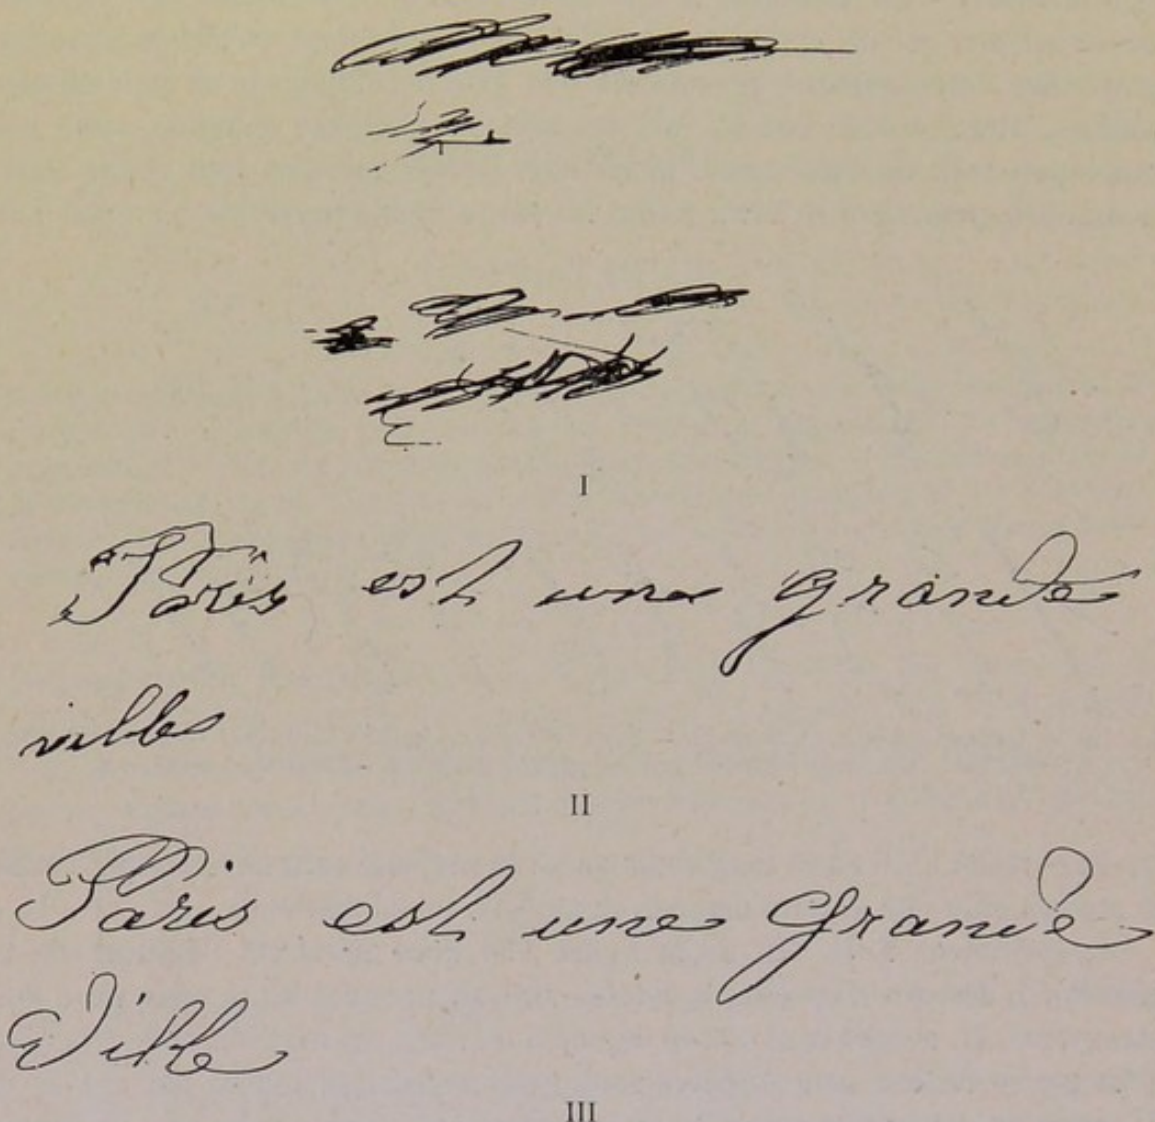 I
Paris est une grande
ville
II
Paris est une Grande
Ville
III